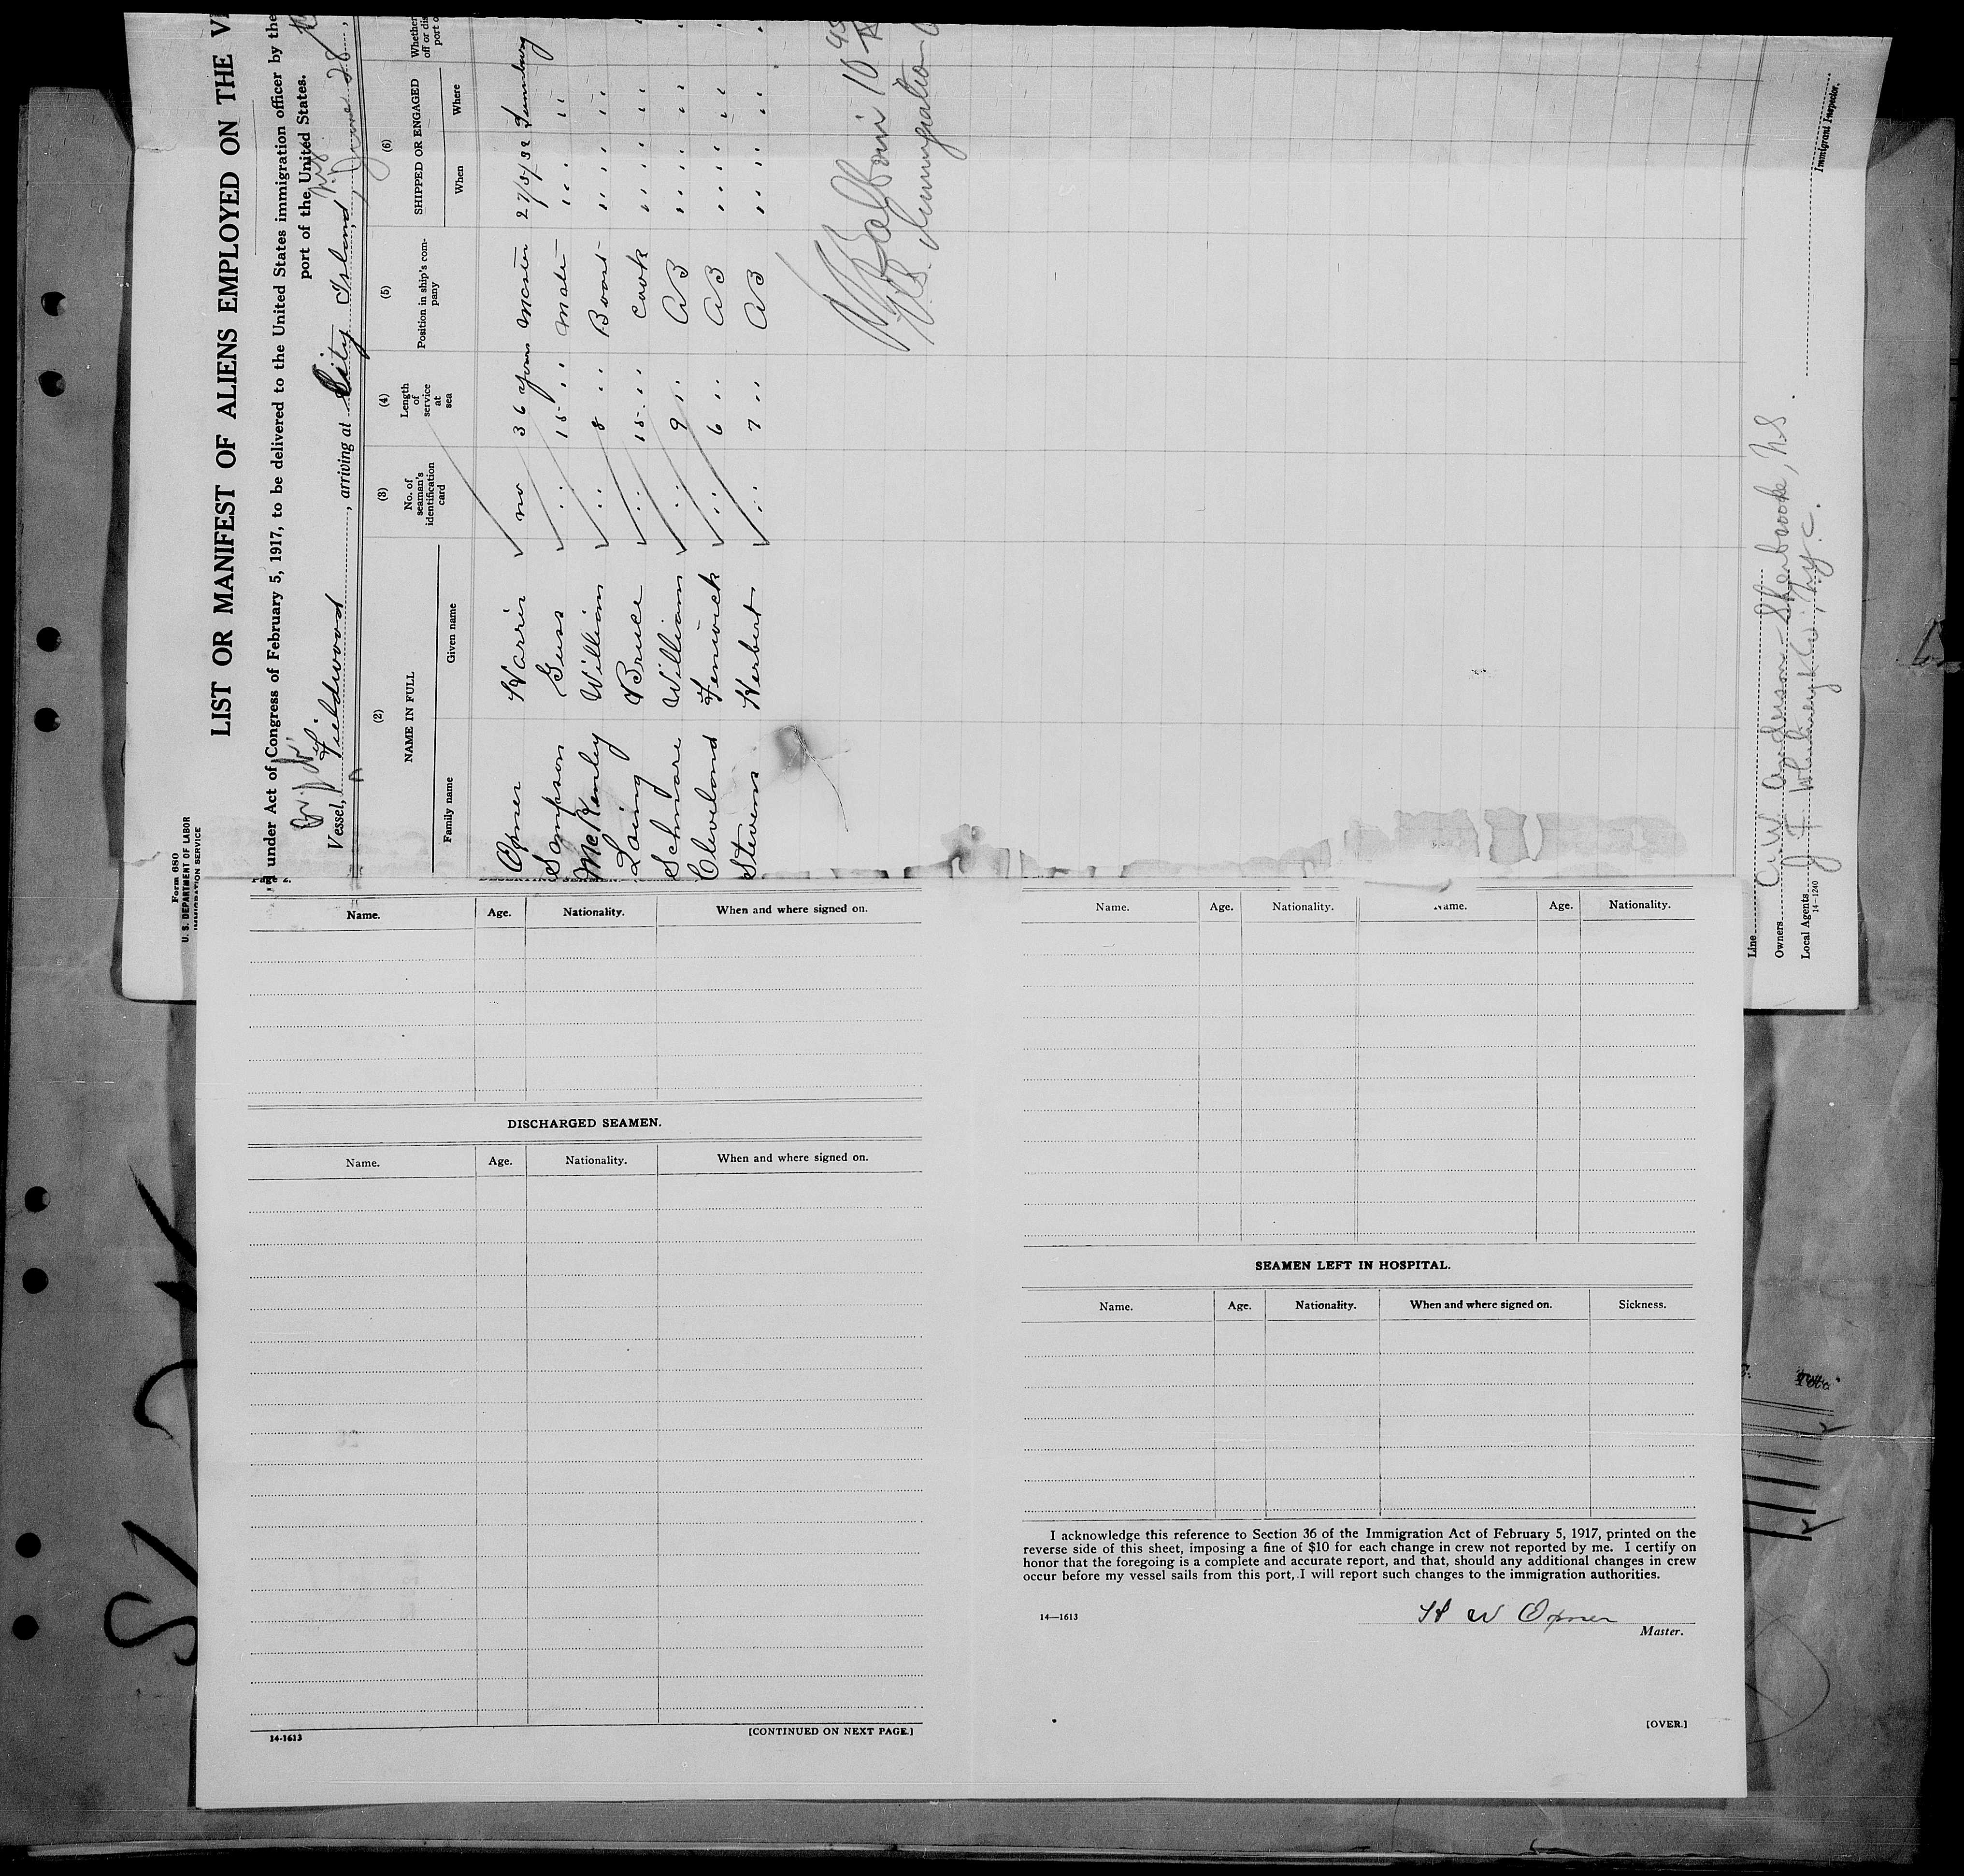 Form 680
U. S. DEPARTMENT OF LABOR
IMMIGRATION SERVICE
LIST OR MANIFEST OF ALIENS EMPLOYED ON THE
under Act of Congress of February 5, 1917, to be delivered to the United States immigration officer by the
port of the United States.
Vessel, Fieldwood, arriving at City Island, June 28
(2) (3) (4) (5) (6)
NAME IN FULL No. of seaman's identification card Length of service at sea Position in ship's company SHIPPED OR ENGAGED Whether
Family name Given name When Where
Opner Harris no 36 years Master 27/5/32
Sampson Guss " 15 " Mate " "
McKenley William " 8 " Boast " "
Laing Bruce " 15 " Cook " "
Schnare William " 9 " AB " "
Cleveland Fenwick " 6 " AB " "
Stevens Herbert " 7 " AB " "
Immigration
Line
Owners C. W. Anderson - Sherbrooke, N.S.
Local Agents J F Whitney & Co, N.Y.C.
14-1240
Immigrant Inspector.
Name. Age. Nationality. When and where signed on.
DISCHARGED SEAMEN.
Name. Age. Nationality. When and where signed on.
14-1613 [CONTINUED ON NEXT PAGE.]
Name. Age. Nationality. Name. Age. Nationality.
SEAMEN LEFT IN HOSPITAL.
Name. Age. Nationality. When and where signed on. Sickness.
I acknowledge this reference to Section 36 of the Immigration Act of February 5, 1917, printed on the
reverse side of this sheet, imposing a fine of $10 for each change in crew not reported by me. I certify on
honor that the foregoing is a complete and accurate report, and that, should any additional changes in crew
occur before my vessel sails from this port, I will report such changes to the immigration authorities.
14—1613 H W Opner
Master.
[OVER.]